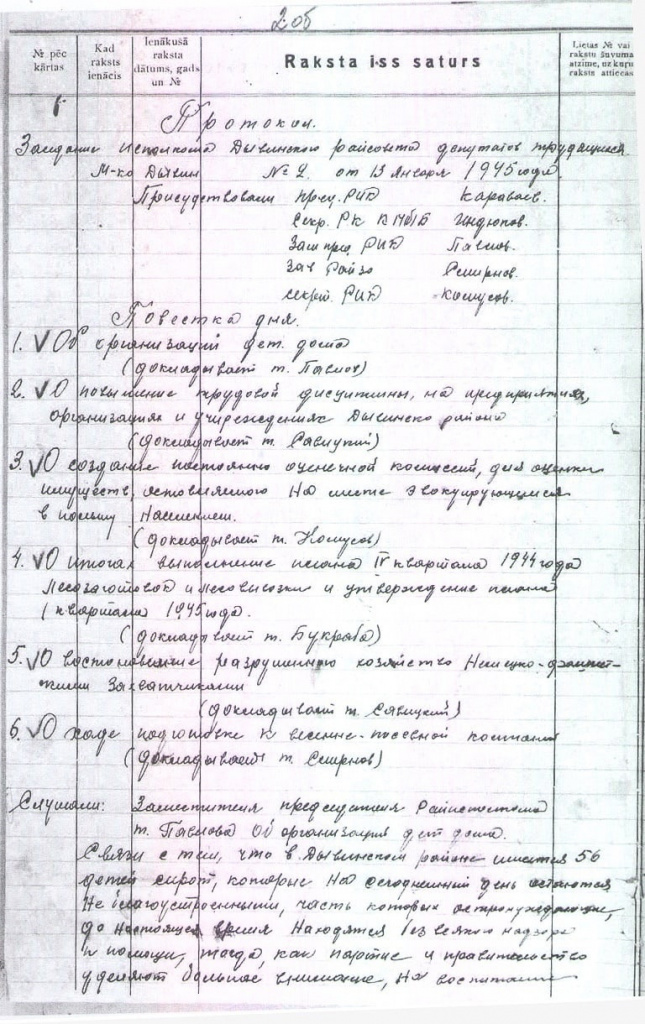 205
№ pēc kārtas
Kad raksts ienācis
Ienākusā raksta dātums, gads un №
Raksta iss saturs
Lietas № vai rakstu šuvuma atzīme, uz kuru raksts attiecas
Протокол.
Заседание исполкома Дывинского райсовета депутатов трудящихся
М-ко Дывин № 2. от 13 января 1945 года.
Присудствовали пред. РИК Караваев.
Секр. РК КП(б)Б Индюпов.
Зам пред. РИК Павлов.
Зав Райзо Смирнов.
секрет. РИК Комусов.
Повестка дня.
1. V Об организаций дет. дома
(докладывает т. Павлов)
2. V О повышение трудовой дисциплины, на предприятиях,
организациях и учреждениях Дывинско района
(докладывает т. Савицкий)
3. V О создание постоянно оценечной комиссий, для оценки
имуществ, оставляемого на месте эвакуирующимся
в польшу населением.
(докладывает т. Комусов)
4. V О итогах выполнение плана IV квартала 1944 года
Лесозаготовок и лесовывозки и утверждение плана
1 квартала 1945 года.
(докладывает т. Букраба)
5. V О востоновление разрушенного хозяйства Немецко-фашист-
скими Захватчиками
(докладывает т. Савицкий)
6. V О ходе подготовке к весенне-посевной компании
(докладывает т. Смирнов)
Слушали: Заместителя председателя Райисполкома
т. Павлова Об организация дет дома.
Связи с тем, что в Дывинском районе имеется 56
детей сирот, которые на сегоднешний день остаются
Не благоустроенными, часть которых
до настоящее время находятся без всякого надзора
и помощи, тогда, как партие и правительство
уделяют большое внимание, на воспитание